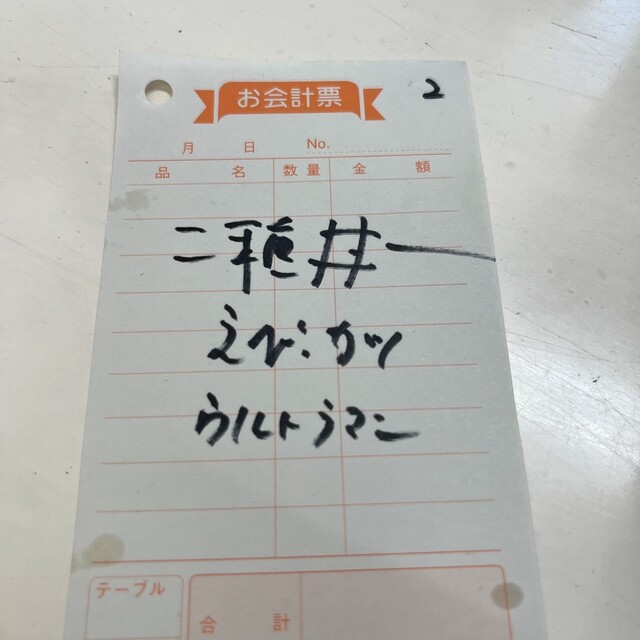 お会計票
2
月 日 No.
品 名 数量 金 額
二種丼一
えび.カツ
ウルトラマン
テーブル
合 計